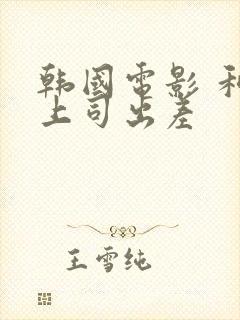 韩國电影 和
上司出差
王雪纯